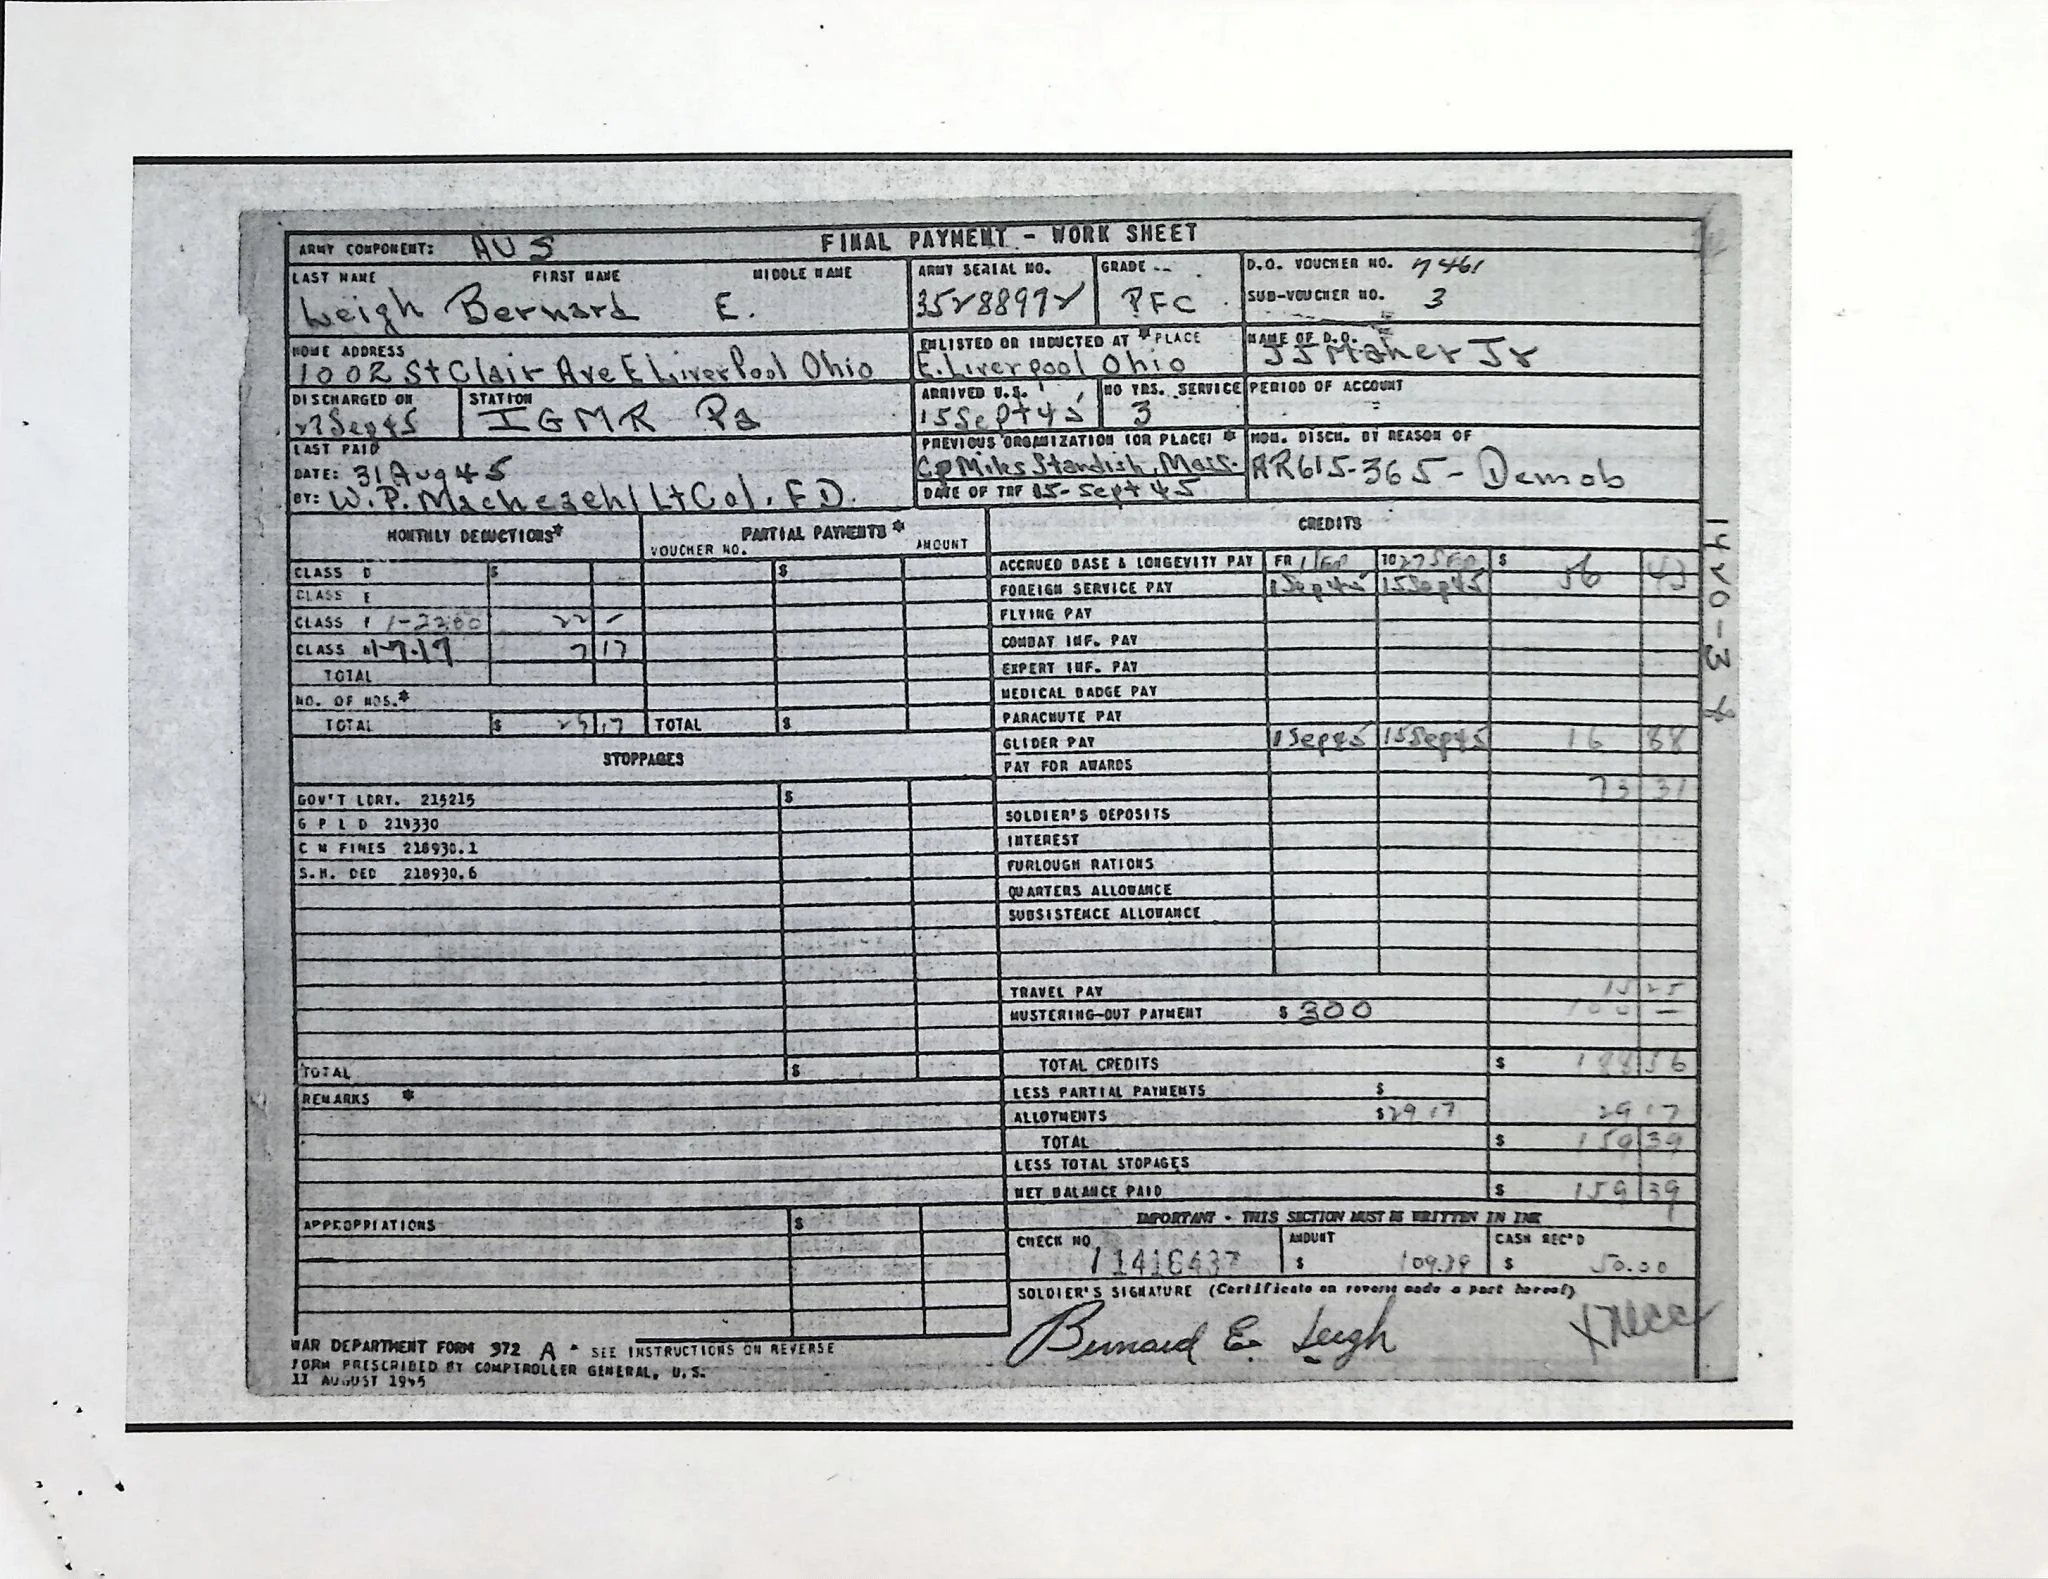 ARMY COMPONENT: AUS FINAL PAYMENT - WORK SHEET
LAST NAME FIRST NAME MIDDLE NAME ARMY SERIAL NO. GRADE D.O. VOUCHER NO. 7461
Leigh Bernard E. 35288972 PFC SUB-VOUCHER NO. 3
HOME ADDRESS ENLISTED OR INDUCTED AT * PLACE NAME OF D.O.
1002 St Clair Ave E Liverpool Ohio E. Liverpool Ohio JJ Maher Jr
DISCHARGED ON STATION ARRIVED U.S. NO YRS. SERVICE PERIOD OF ACCOUNT
27 Sep 45 IGMR Pa 15 Sept 45 3
LAST PAID PREVIOUS ORGANIZATION (OR PLACE) * HON. DISCH. BY REASON OF
DATE: 31 Aug 45 Cp Miles Standish, Mass. AR615-365 - Demob
BY: W.P. Lt Col. F.D. DATE OF TRF 15-Sept 45
MONTHLY DEDUCTIONS* PARTIAL PAYMENTS * CREDITS
VOUCHER NO. AMOUNT
CLASS D $ $ ACCRUED BASE & LONGEVITY PAY FR 1 Sep TO 27 SEP $ 56 43
CLASS E FOREIGN SERVICE PAY 1Sep45 15Sep45
CLASS F 1-22.00 22 - FLYING PAY
CLASS N 1-7.17 7 17 COMBAT INF. PAY
TOTAL EXPERT INF. PAY
NO. OF MOS.* MEDICAL BADGE PAY
TOTAL $ 29 17 TOTAL $ PARACHUTE PAY
STOPPAGES GLIDER PAY 1Sep45 15Sep45 16 88
PAY FOR AWARDS
GOV'T LDRY. 215215 $ 73 31
G P L D 214330 SOLDIER'S DEPOSITS
C M FINES 218930.1 INTEREST
S.H. DED 218930.6 FURLOUGH RATIONS
QUARTERS ALLOWANCE
SUBSISTENCE ALLOWANCE
TRAVEL PAY 15 25
MUSTERING-OUT PAYMENT $ 300 100 -
TOTAL $ TOTAL CREDITS $ 188 56
REMARKS * LESS PARTIAL PAYMENTS $
ALLOTMENTS $ 29 17 29 17
TOTAL $ 159 39
LESS TOTAL STOPAGES
NET BALANCE PAID $ 159 39
APPROPRIATIONS $ IMPORTANT - THIS SECTION MUST BE WRITTEN IN INK
CHECK NO. AMOUNT CASH REC'D
11416437 $ 109.39 $ 50.00
SOLDIER'S SIGNATURE (Certificate on reverse made a part hereof)
Bernard E. Leigh
WAR DEPARTMENT FORM 372 A * SEE INSTRUCTIONS ON REVERSE
FORM PRESCRIBED BY COMPTROLLER GENERAL, U.S.
11 AUGUST 1945